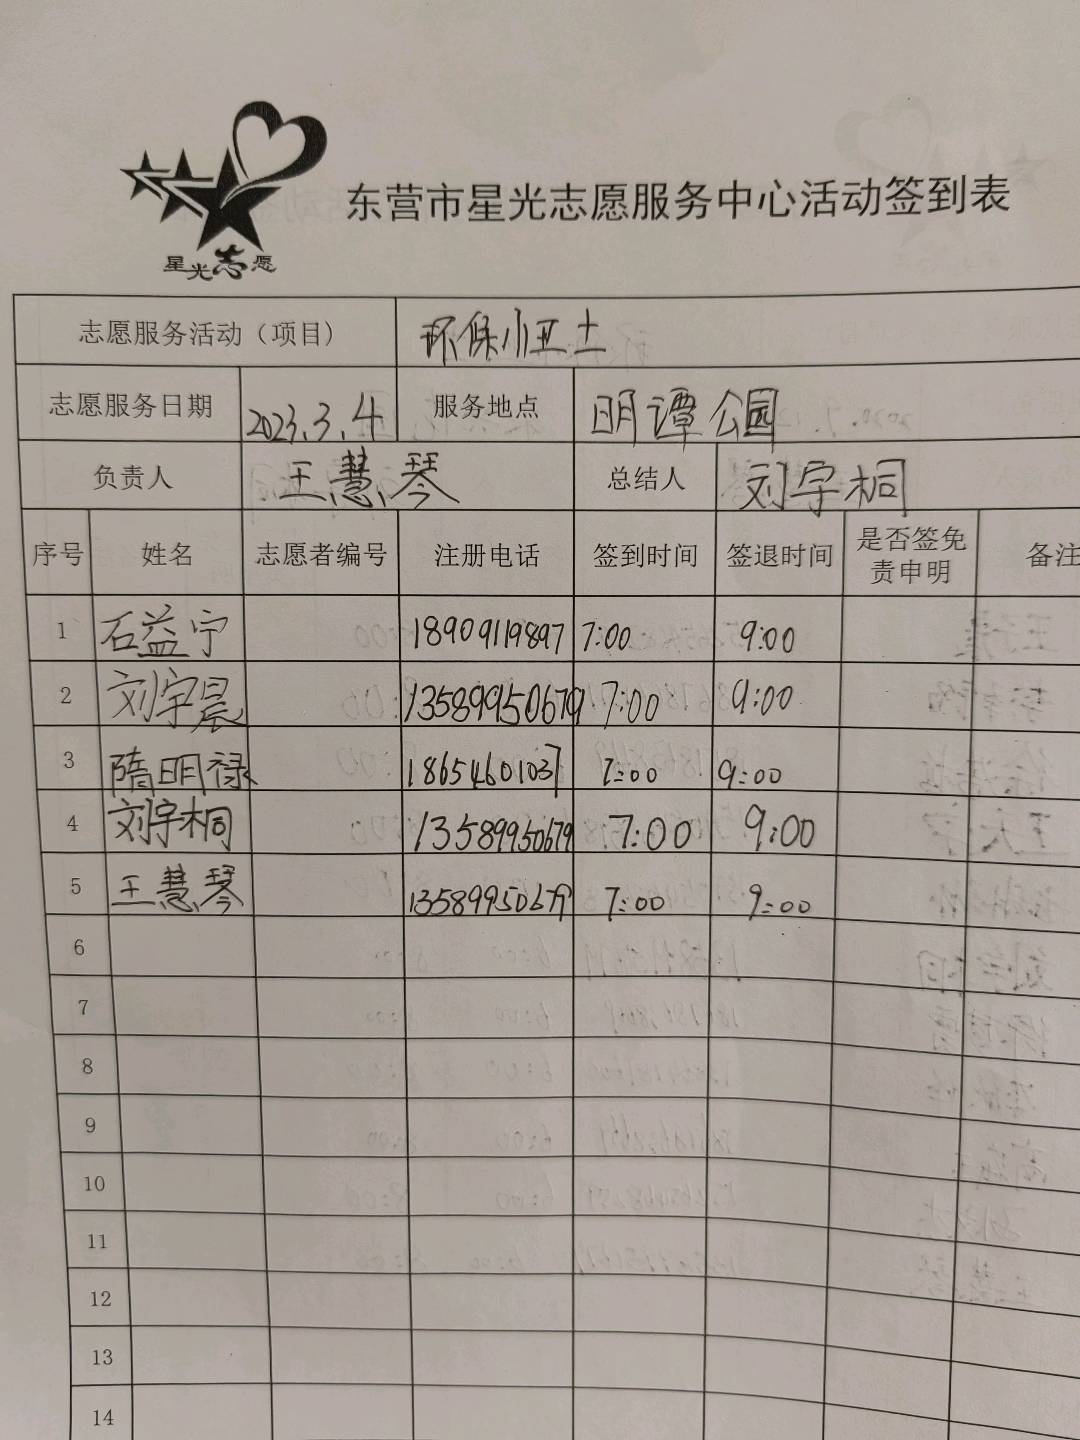 星光志愿
东营市星光志愿服务中心活动签到表
志愿服务活动（项目） 环保小卫士
志愿服务日期 2023.3.4 服务地点 明谭公园
负责人 王慧琴 总结人 刘宇桐
序号 姓名 志愿者编号 注册电话 签到时间 签退时间 是否签免责申明 备注
1 石益宁 18909119897 7:00 9:00
2 刘宇晨 13589950679 7:00 9:00
3 隋明禄 18654601037 7:00 9:00
4 刘宇桐 13589950679 7:00 9:00
5 王慧琴 13589950679 7:00 9:00
6
7
8
9
10
11
12
13
14